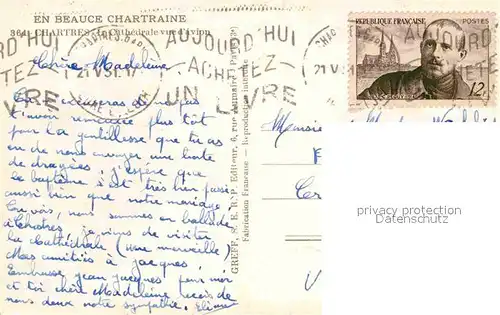 EN BEAUCE CHARTRAINE
CHARTRES. - Cathédrale vue d'avion
AUJOURD'HUI
ACHETEZ
UN LIVRE
21 V 51
RÉPUBLIQUE FRANÇAISE
POSTES
12
Chère Madeleine
de ne pas
t'avoir remerciée plus tôt
pour la gentillesse que tu as
eu de nous envoyer une boîte
de dragées, j'espère que
le baptême s'est très bien passé
aussi bien que notre mariage.
Tu vois, nous sommes en ballade
à Chartres, je viens de visiter
la Cathédrale (une merveille)
Mes amitiés à Jacques,
Embrasse Jean Jacques pour moi
et toi chère Madeleine reçois de
nous deux notre sympathie. Eliane
Fabrication Française - Reproduction interdite
privacy protection
Datenschutz